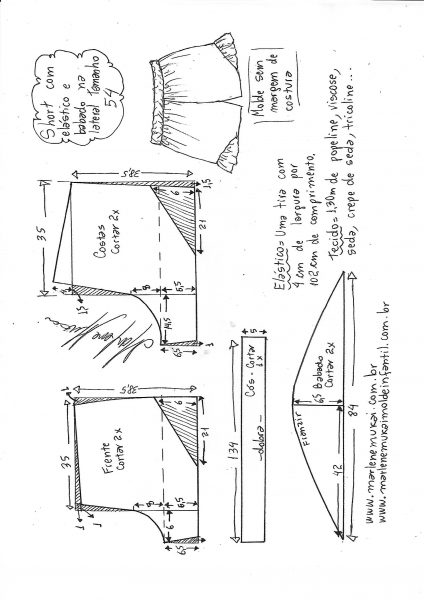 Short com
elástico e
babado na
lateral Tamanho
54
Molde sem
margem de
costura
Tecido=1,30m de popeline, viscose,
seda, crepe de seda, tricoline...
Elástico=Uma tira com
4 cm de largura por
102 cm de comprimento.
35
38,5
Costas
Cortar 2x
8
6
6,5
1,5
21
1,5
14,5
6,5
1
35
38,5
Frente
Cortar 2x
1
1
1
8
6
6,5
21
6
6,5
134
5
Cós - Cortar
1x
dobra
Franzir
6,5
Babado
Cortar 2x
42
84
www.marlenemukai.com.br
www.marlenemukaimoldeinfantil.com.br